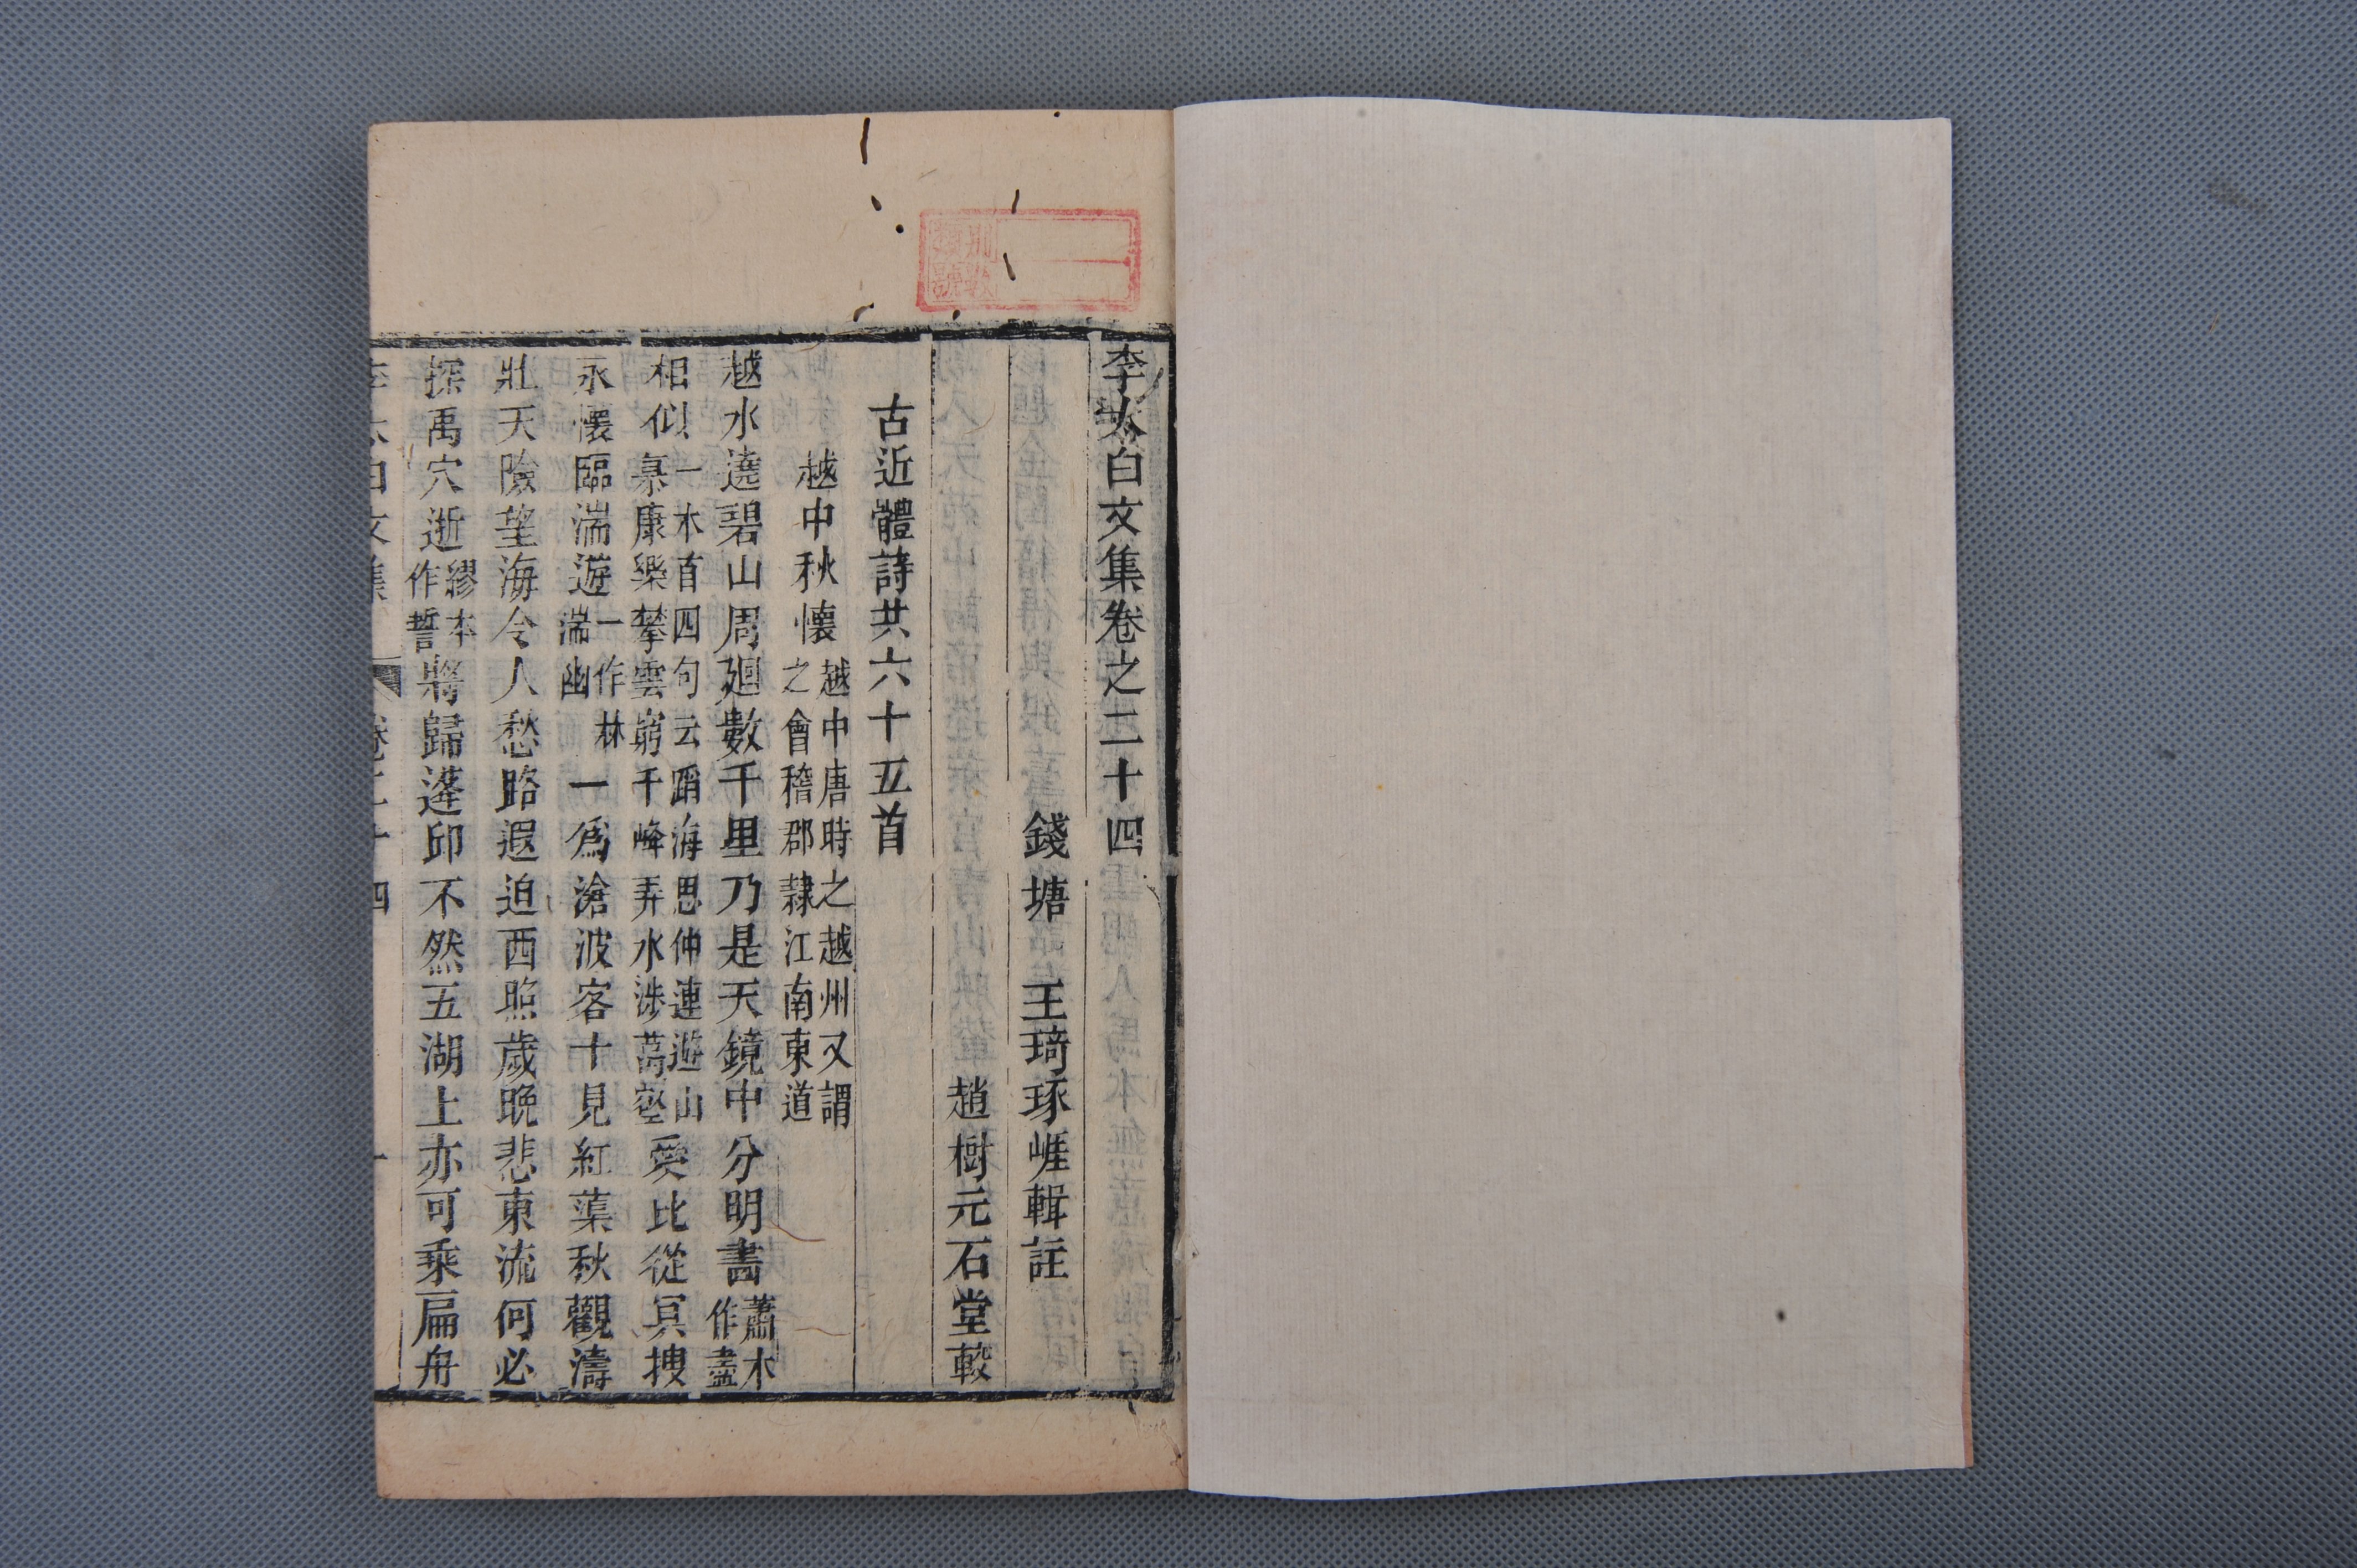 李太白文集卷之二十四
錢塘 王琦琢崖輯註
趙樹元石堂較
古近體詩共六十五首
越中秋懷
越中唐時之越州又謂
之會稽郡隷江南東道
越水遶碧山周廻數千里乃是天鏡中分明畫
蕭本
作盡
相似
一本首四句云蹈海思仲連遊山
慕康樂攀雲窮千峰弄水涉萬壑
愛此從冥搜
永懷臨湍遊
一作林
湍幽
一爲滄波客十見紅蕖秋觀濤
壯天險望海令人愁路遐迫西照歲晚悲東流何必
探禹穴逝
繆本
作誓
將歸蓬邱不然五湖上亦可乘扁舟
李太白文集 卷二十四 一